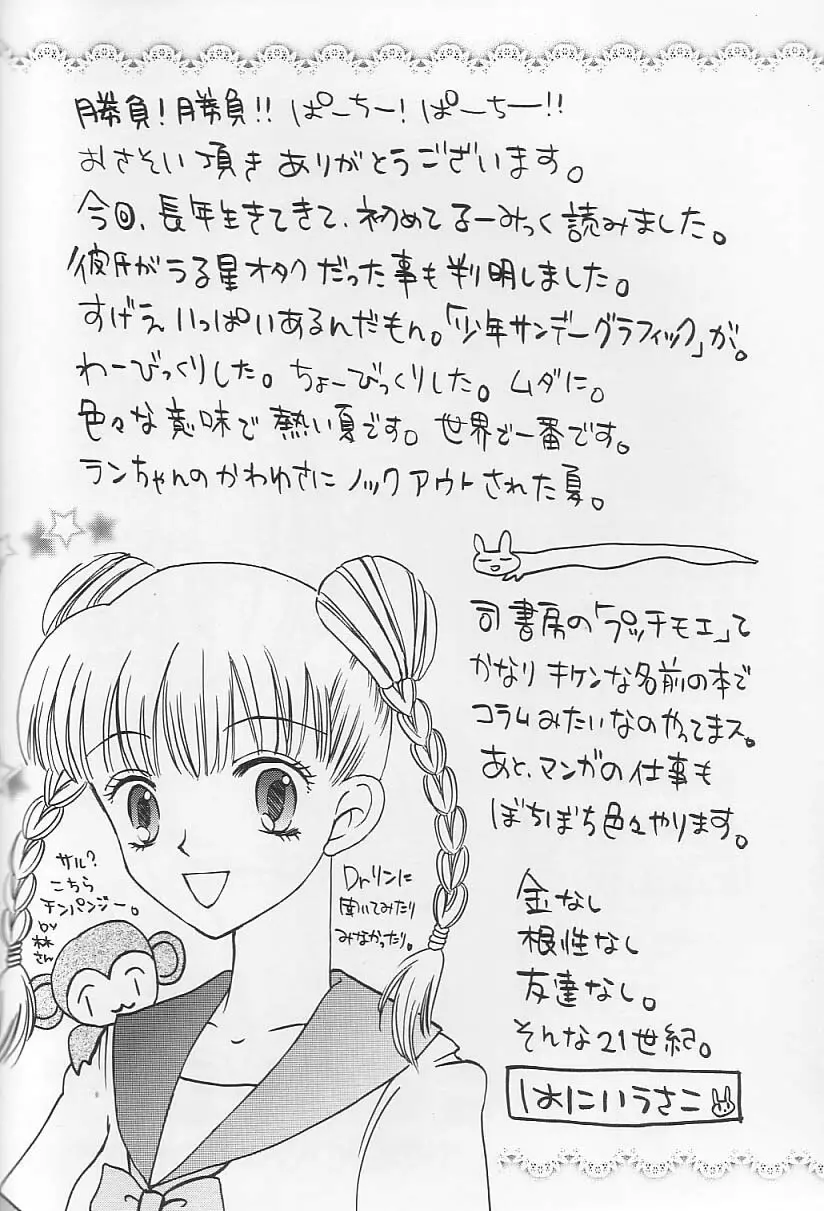 勝負！勝負！！ぱーちー！ぱーちー！！
おさそい頂きありがとうございます。
今回、長年生きてきて、初めてるーみっく読みました。
彼氏がうる星オタクだった事も判明しました。
すげえいっぱいあるんだもん。「少年サンデーグラフィック」が。
わーびっくりした。ちょーびっくりした。ムダに。
色々な意味で熱い夏です。世界で一番です。
ランちゃんのかわゆさにノックアウトされた夏。
司書房の「プッチモエ」て
かなりキケンな名前の本で
コラムみたいなのやってまス。
あと、マンガの仕事も
ぼちぼち色々やります。
サル？
こちら
チンパンジー。
by
林さん
Dr.リンに
聞いてみたり
みなかったり。
金なし
根性なし
友達なし。
そんな21世紀。
はにいうさこ